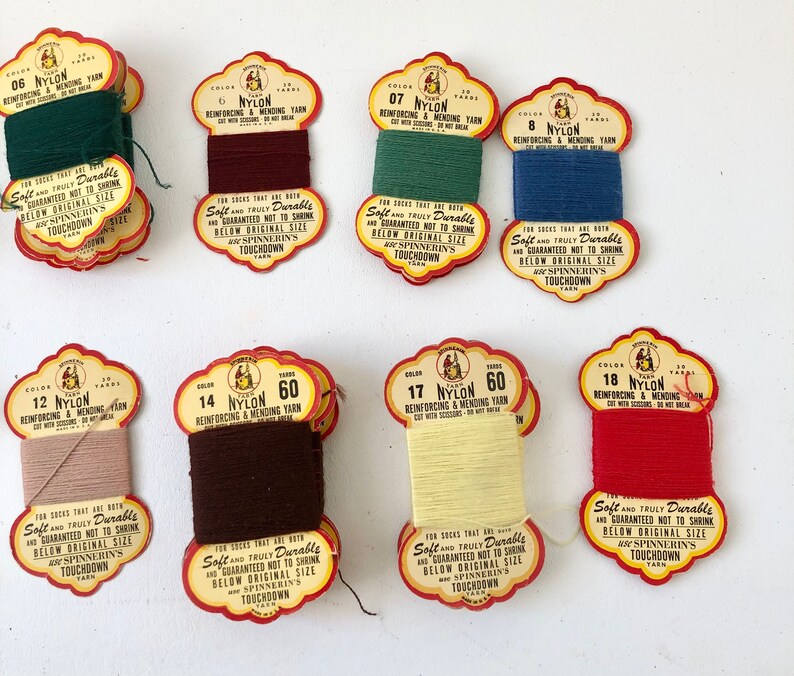 SPINNERIN
COLOR 30 YARDS
06 YARN
NYLON
REINFORCING & MENDING YARN
CUT WITH SCISSORS - DO NOT BREAK
Soft AND TRULY Durable
AND GUARANTEED NOT TO SHRINK
BELOW ORIGINAL SIZE
use SPINNERIN'S
TOUCHDOWN
YARN
SPINNERIN
COLOR 30 YARDS
6 YARN
NYLON
REINFORCING & MENDING YARN
CUT WITH SCISSORS - DO NOT BREAK
MADE IN U.S.A.
FOR SOCKS THAT ARE BOTH
Soft AND TRULY Durable
AND GUARANTEED NOT TO SHRINK
BELOW ORIGINAL SIZE
use SPINNERIN'S
TOUCHDOWN
YARN
SPINNERIN
COLOR 30 YARDS
07 YARN
NYLON
REINFORCING & MENDING YARN
CUT WITH SCISSORS - DO NOT BREAK
MADE IN U.S.A.
FOR SOCKS THAT ARE BOTH
Soft AND TRULY Durable
AND GUARANTEED NOT TO SHRINK
BELOW ORIGINAL SIZE
use SPINNERIN'S
TOUCHDOWN
YARN
SPINNERIN
COLOR 30 YARDS
8 YARN
NYLON
REINFORCING & MENDING YARN
CUT WITH SCISSORS - DO NOT BREAK
FOR SOCKS THAT ARE BOTH
Soft AND TRULY Durable
AND GUARANTEED NOT TO SHRINK
BELOW ORIGINAL SIZE
use SPINNERIN'S
TOUCHDOWN
YARN
SPINNERIN
COLOR 30 YARDS
12 YARN
NYLON
REINFORCING & MENDING YARN
CUT WITH SCISSORS - DO NOT BREAK
MADE IN U.S.A.
FOR SOCKS THAT ARE BOTH
Soft AND TRULY Durable
AND GUARANTEED NOT TO SHRINK
BELOW ORIGINAL SIZE
use SPINNERIN'S
TOUCHDOWN
YARN
SPINNERIN
COLOR YARDS
14 YARN 60
NYLON
REINFORCING & MENDING YARN
CUT WITH SCISSORS - DO NOT BREAK
FOR SOCKS THAT ARE BOTH
Soft AND TRULY Durable
AND GUARANTEED NOT TO SHRINK
BELOW ORIGINAL SIZE
use SPINNERIN'S
TOUCHDOWN
YARN
SPINNERIN
COLOR YARDS
17 YARN 60
NYLON
REINFORCING & MENDING YARN
CUT WITH SCISSORS - DO NOT BREAK
FOR SOCKS THAT ARE BOTH
Soft AND TRULY Durable
AND GUARANTEED NOT TO SHRINK
BELOW ORIGINAL SIZE
use SPINNERIN'S
TOUCHDOWN
YARN
MADE IN U.S.A.
SPINNERIN
COLOR 30 YARDS
18 YARN
NYLON
REINFORCING & MENDING YARN
CUT WITH SCISSORS - DO NOT BREAK
FOR SOCKS THAT ARE BOTH
Soft AND TRULY Durable
AND GUARANTEED NOT TO SHRINK
BELOW ORIGINAL SIZE
use SPINNERIN'S
TOUCHDOWN
YARN